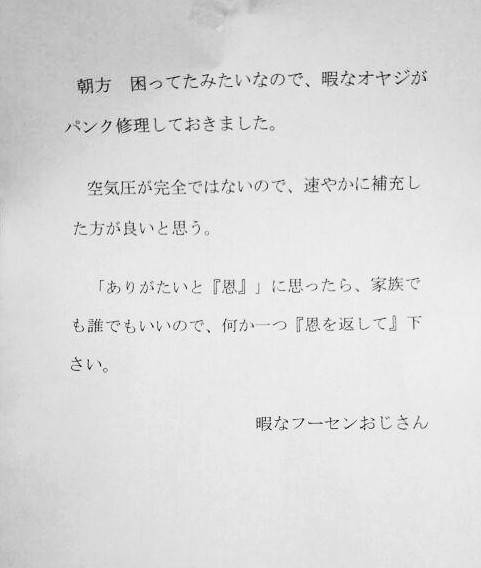 朝方　困ってたみたいなので、暇なオヤジが
パンク修理しておきました。
空気圧が完全ではないので、速やかに補充し
た方が良いと思う。
「ありがたいと『恩』」に思ったら、家族で
も誰でもいいので、何か一つ『恩を返して』下
さい。
暇なフーセンおじさん